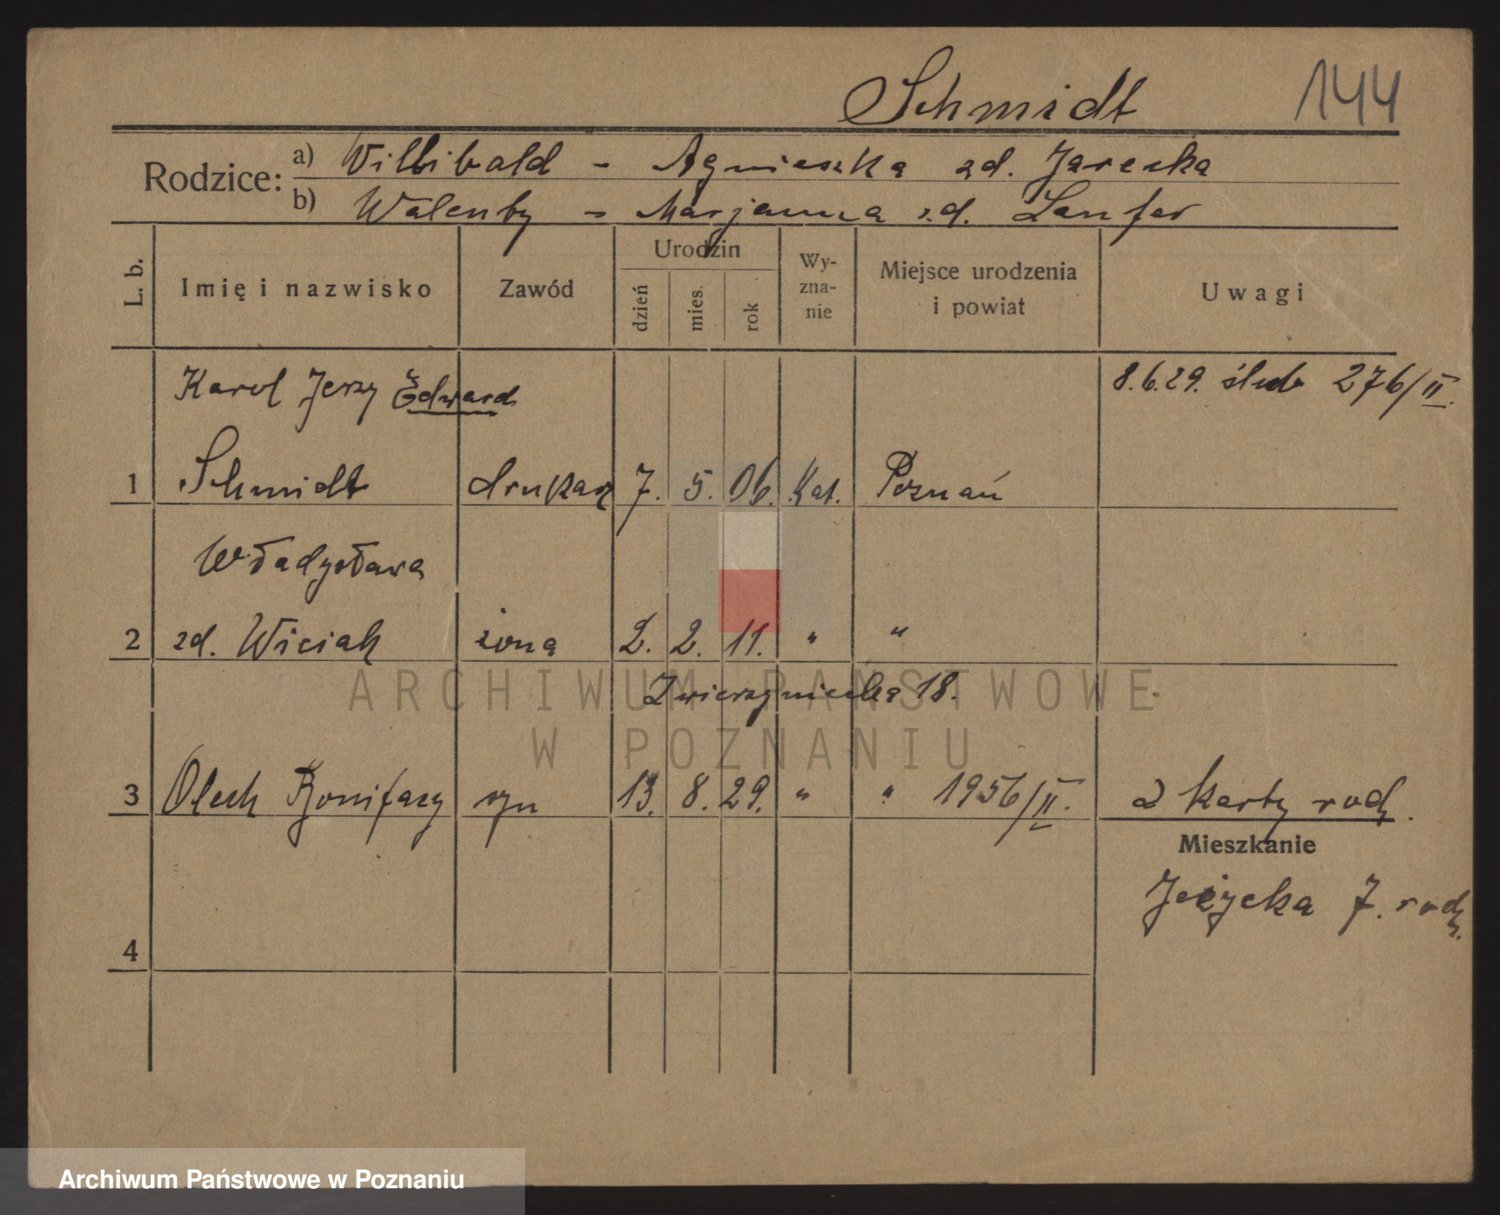 Schmidt 144
Rodzice: a) Willibald - Agnieszka zd. Jarecka
b) Walenty - Marjanna z.d. Laufer
L. b. Imię i nazwisko Zawód Urodzin dzień mies. rok Wy-zna-nie Miejsce urodzenia i powiat Uwagi
Karol Jerzy Edward 8.6.29. ślub 276/II.
1 Schmidt drukarz 7. 5. 06. Kat. Poznań
Władysława
2 zd. Wiciak żona 2. 2. 11. " "
Zwierzyniecka 18.
3 Olech Bonifacy syn 13. 8. 29. " " 1956/II. 2 karty rodz.
Mieszkanie
Jeżycka 7. rodz.
4
ARCHIWUM PAŃSTWOWE
W POZNANIU
Archiwum Państwowe w Poznaniu